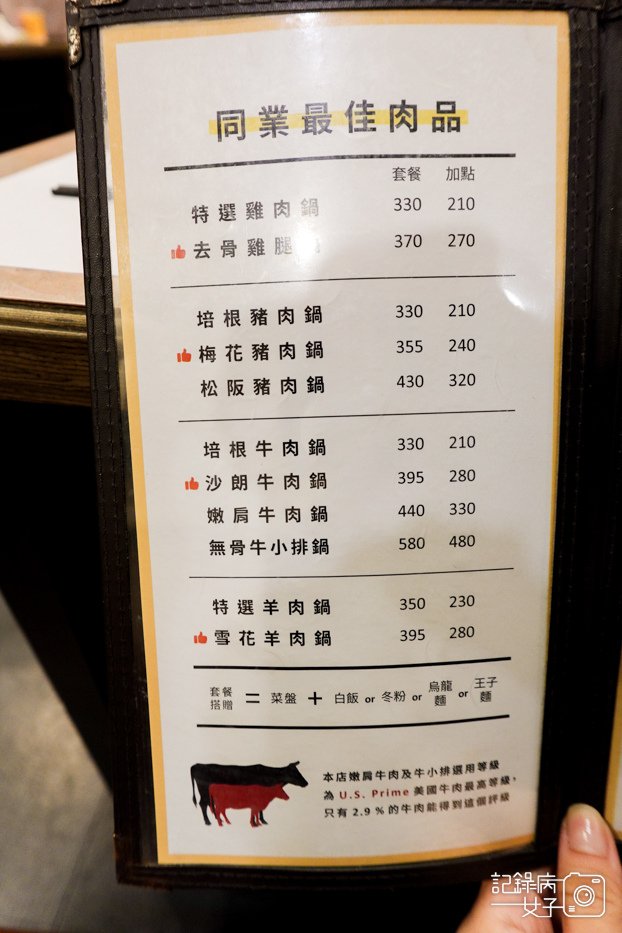 同業最佳肉品
套餐 加點
特選雞肉鍋 330 210
去骨雞腿鍋 370 270
培根豬肉鍋 330 210
梅花豬肉鍋 355 240
松阪豬肉鍋 430 320
培根牛肉鍋 330 210
沙朗牛肉鍋 395 280
嫩肩牛肉鍋 440 330
無骨牛小排鍋 580 480
特選羊肉鍋 350 230
雪花羊肉鍋 395 280
套餐搭贈 = 菜盤 + 白飯 or 冬粉 or 烏龍麵 or 王子麵
本店嫩肩牛肉及牛小排選用等級
為 U.S. Prime 美國牛肉最高等級，
只有 2.9 % 的牛肉能得到這個評級
記錄病
女子